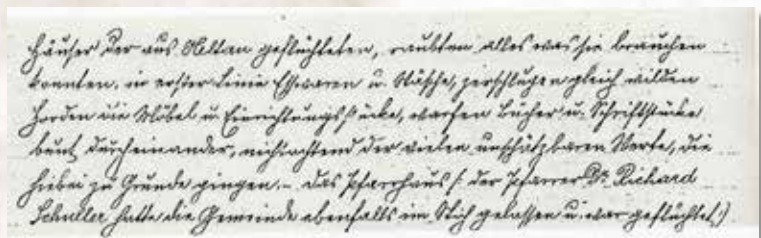 Häuser der aus Heltau geflüchteten, raubten alles was sie brauchen
konnten, in erster Linie Esswaren u. Wäsche, zerschlugen gleich wilden
Horden die Möbel u. Einrichtungsstücke, warfen Bücher u. Schriftstücke
bunt durcheinander, nichtachtend der vielen unschätzbaren Werte, die
hiebei zu Grunde gingen.- Das Pfarrhaus /: der Pfarrer Dr. Richard
Schuller hatte die Gemeinde ebenfalls im Stich gelassen u. war geflüchtet :/